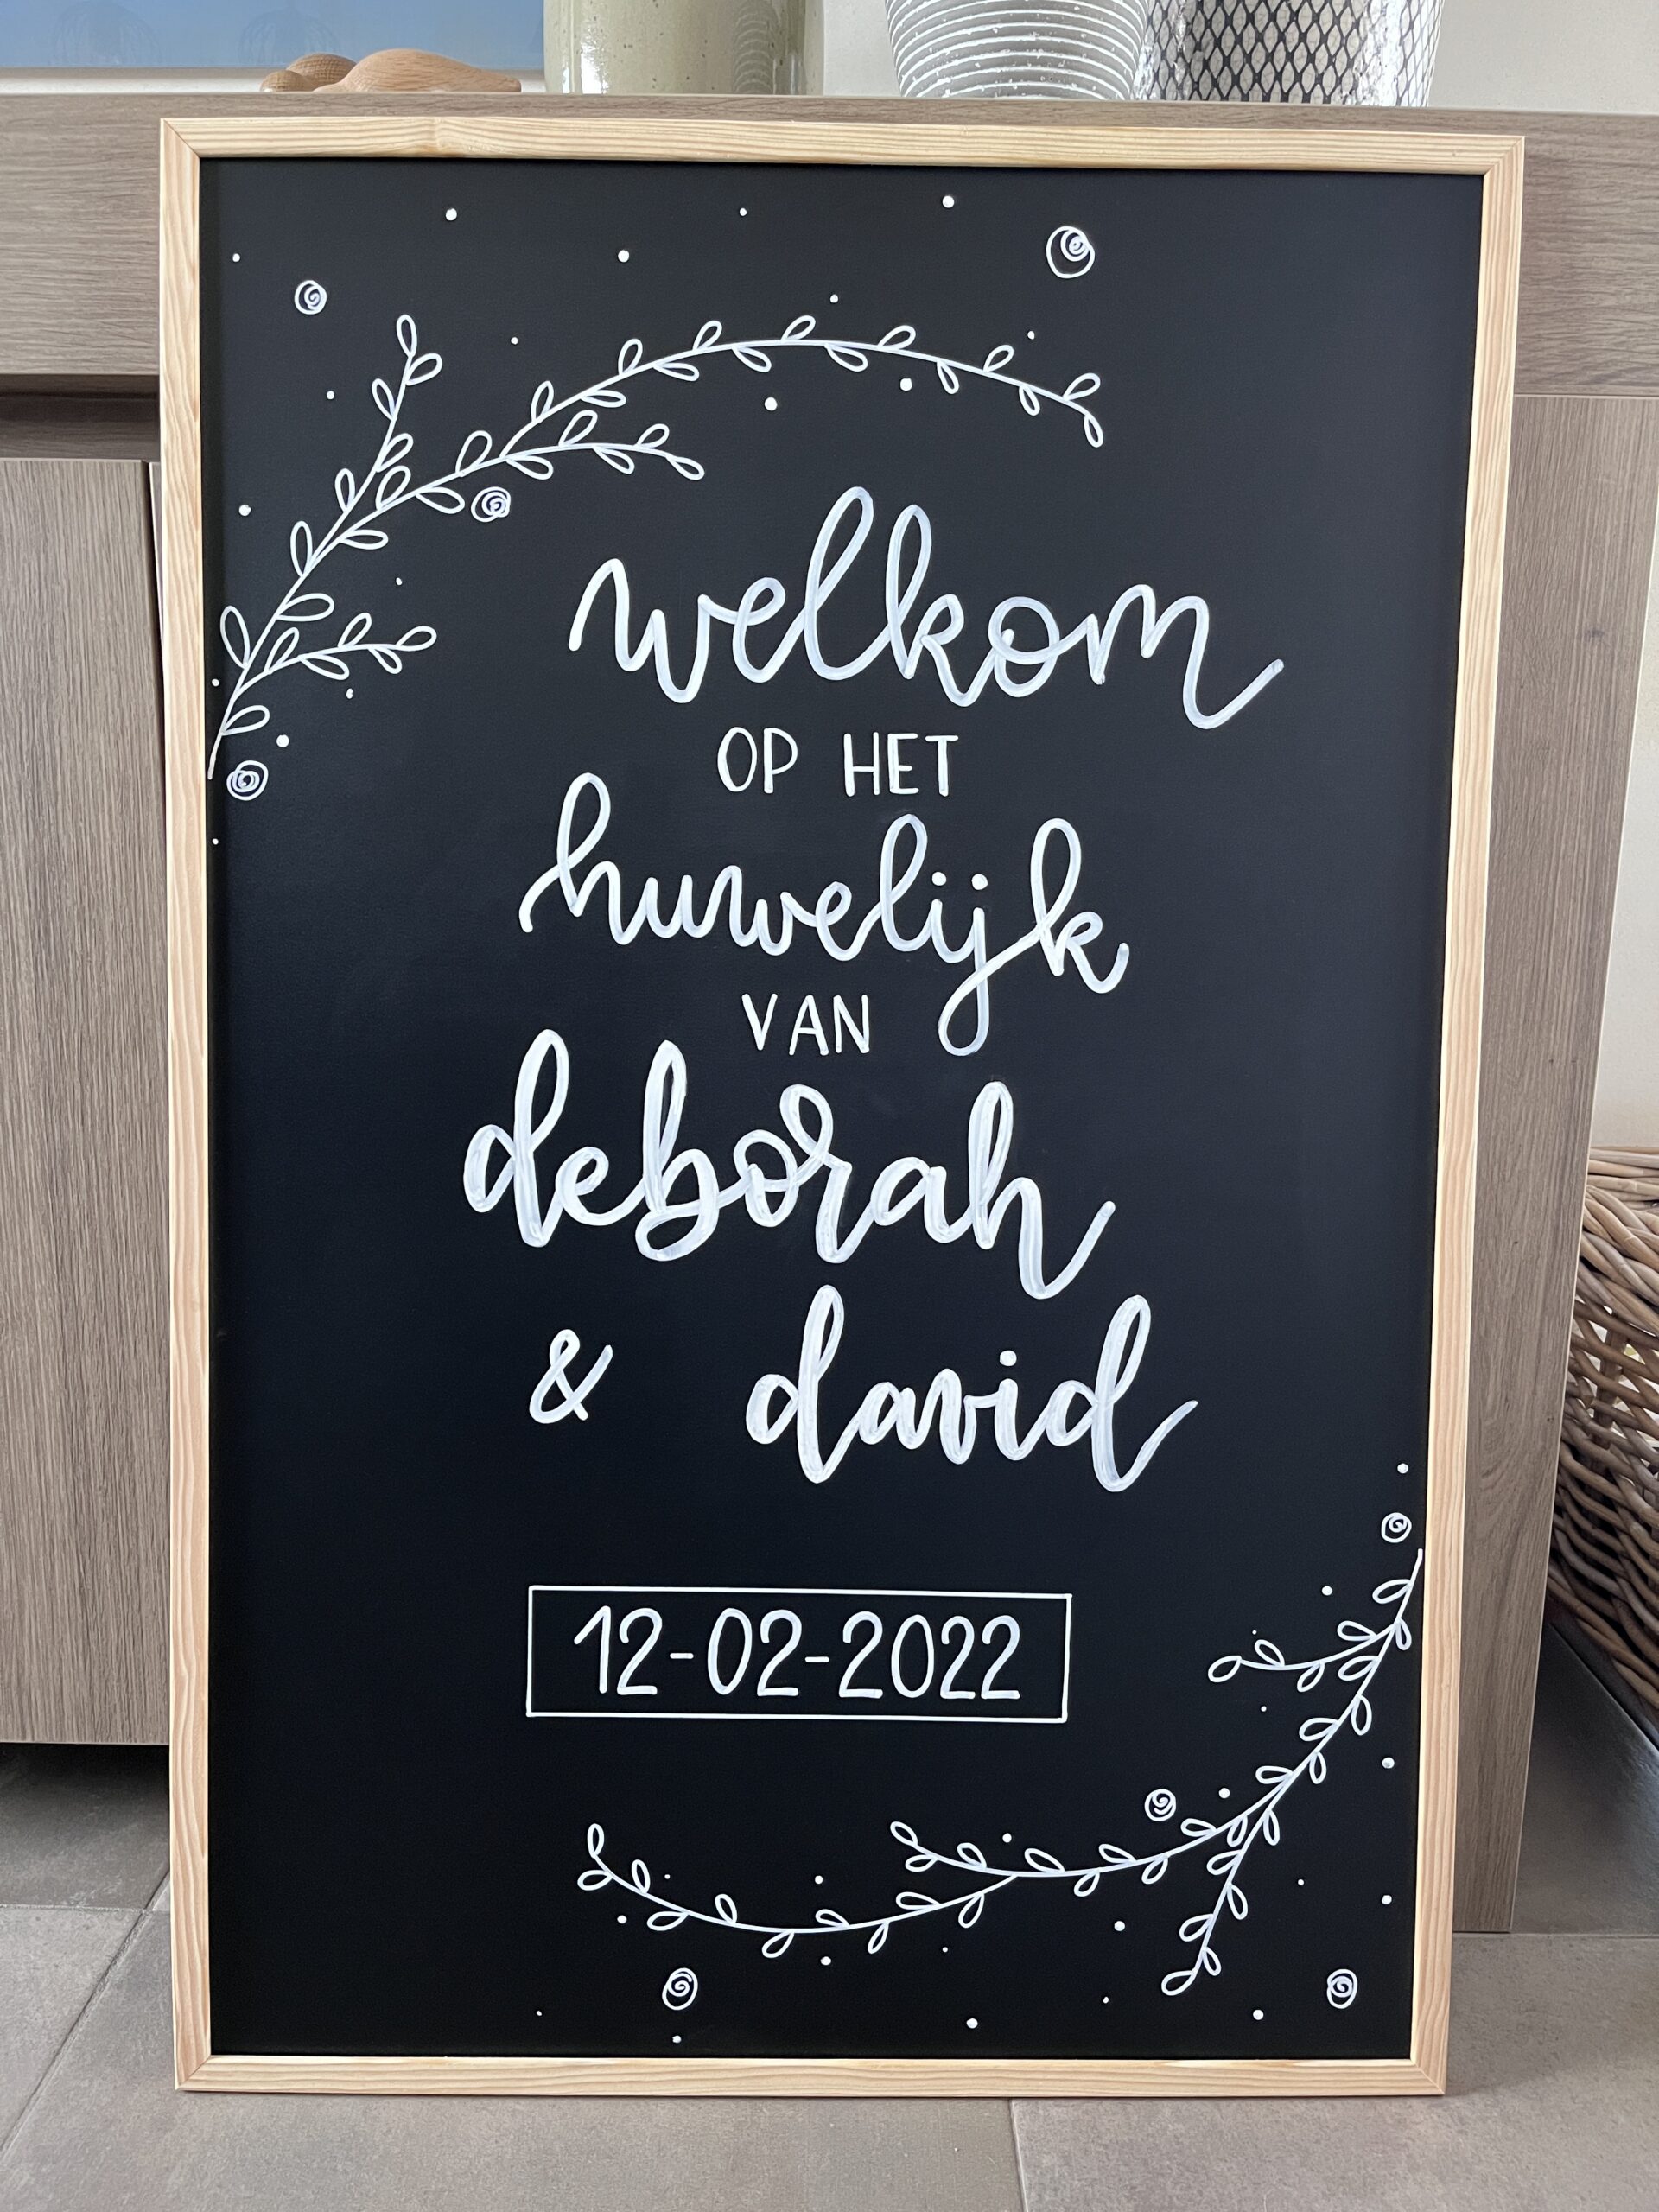 welkom
OP HET
huwelijk
VAN
deborah
& david
12-02-2022